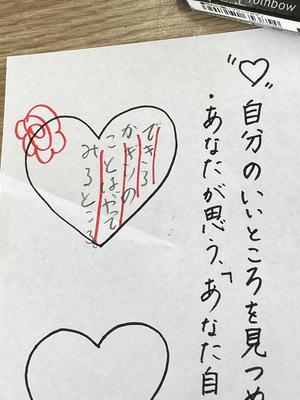 rainbow
"♡"自分のいいところを見つめ
・あなたが思う、「あなた自
できる
かぎりの
ことはやって
みるところ。